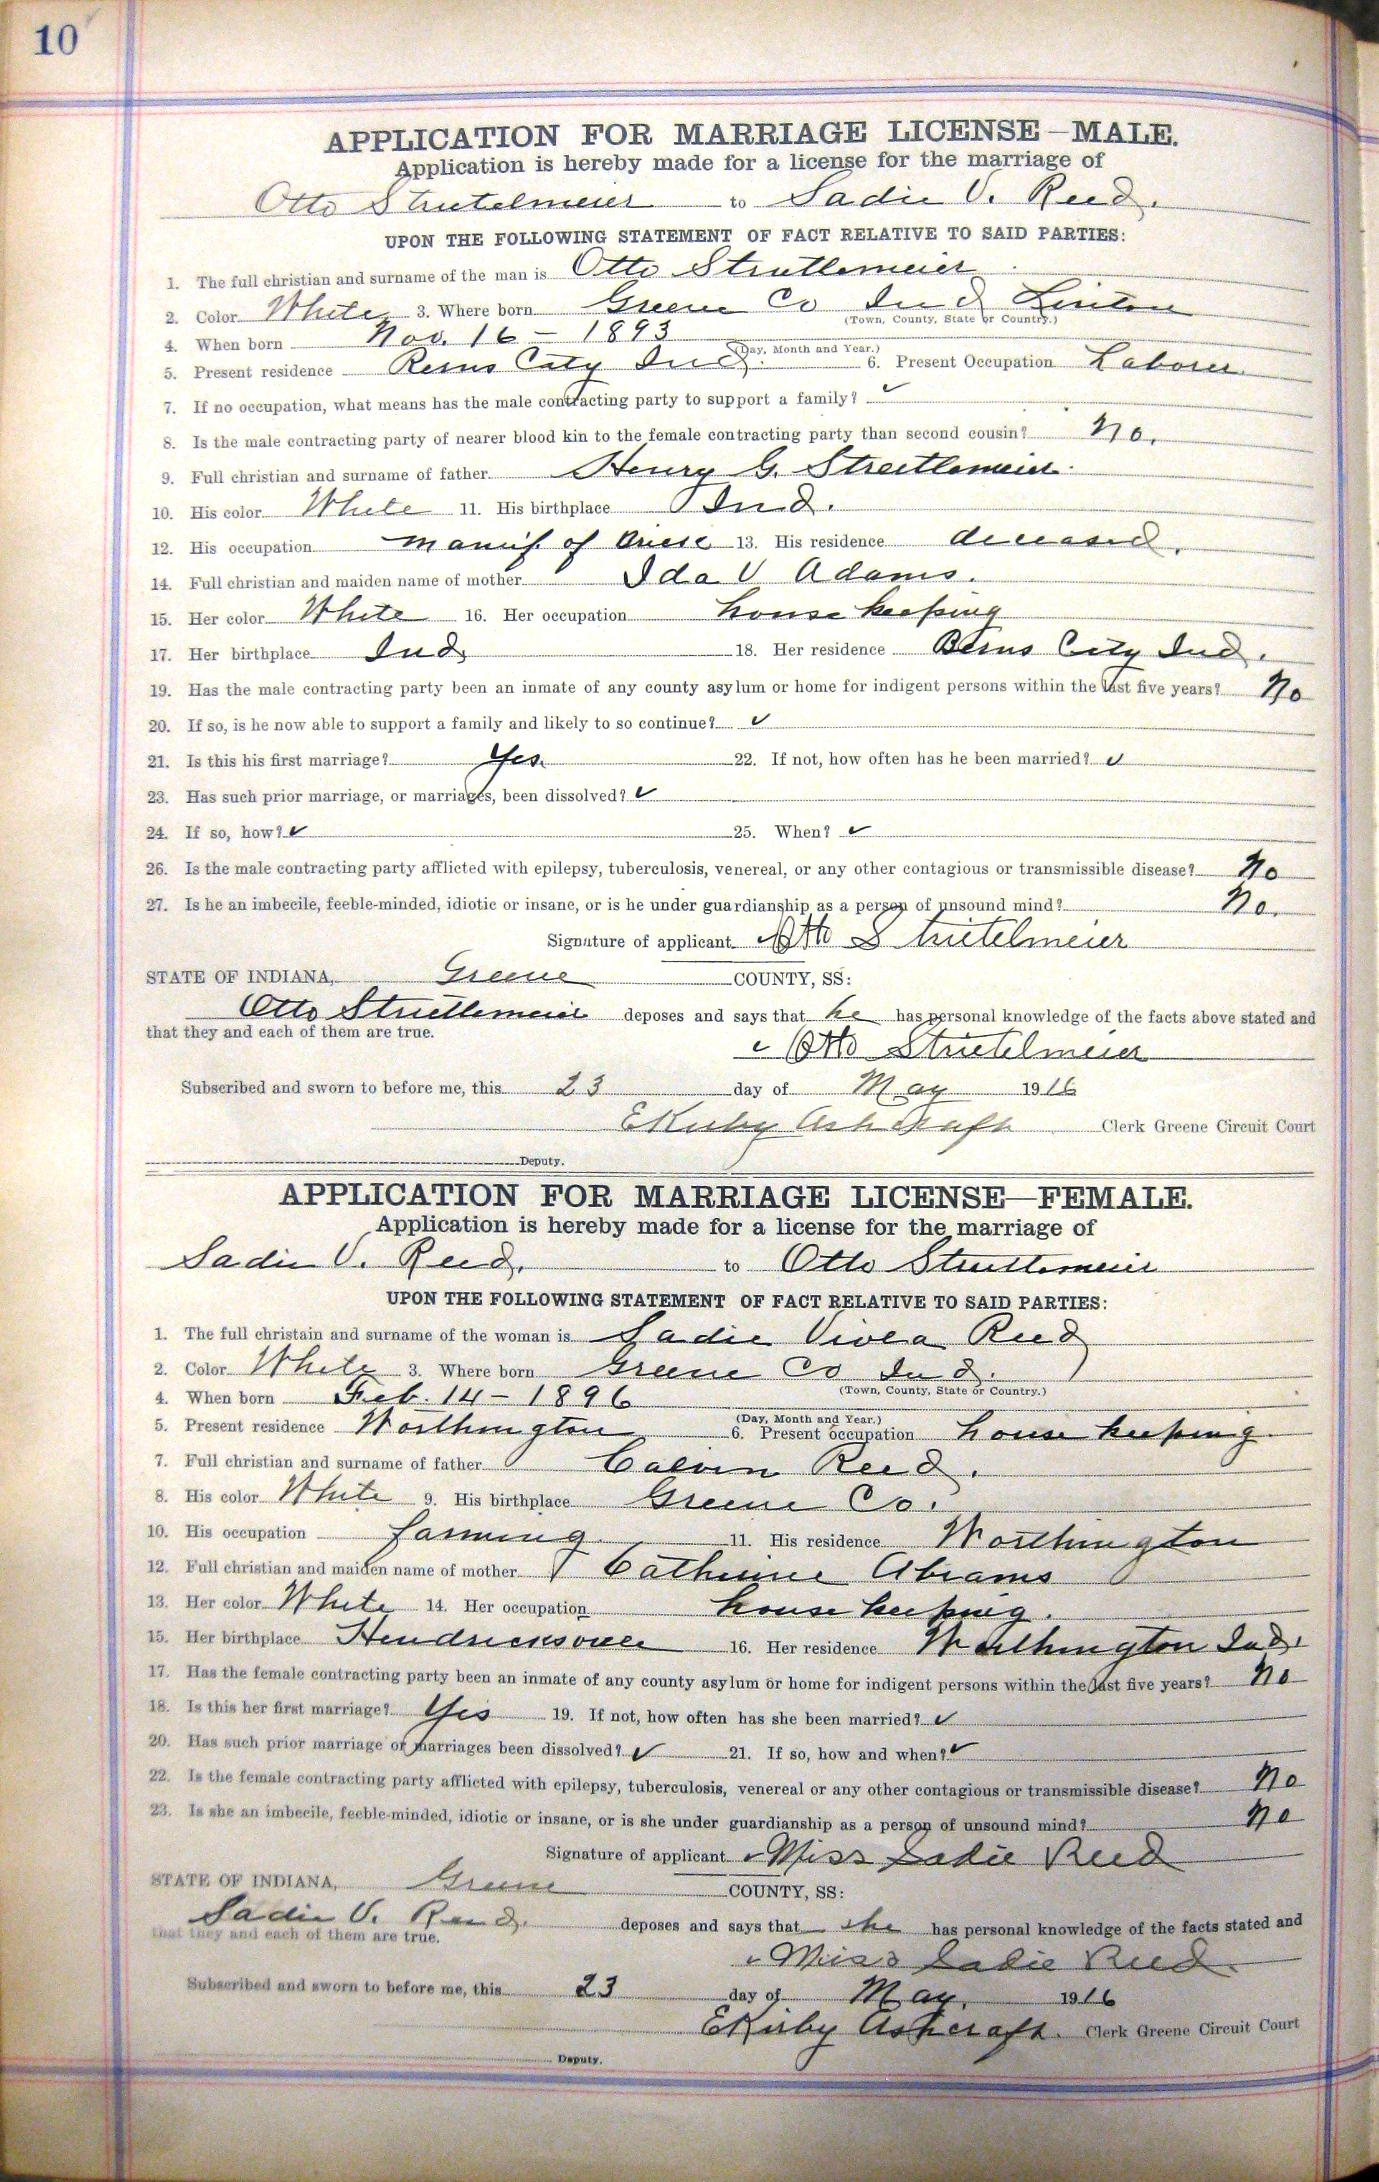 10
APPLICATION FOR MARRIAGE LICENSE—MALE.
Application is hereby made for a license for the marriage of
Otto Strietelmeier to Sadie V. Reed.
UPON THE FOLLOWING STATEMENT OF FACT RELATIVE TO SAID PARTIES:
1. The full christian and surname of the man is Otto Streitlemeier
2. Color White 3. Where born Greene Co Ind Linton
(Town, County, State or Country.)
4. When born Nov. 16 - 1893
(Day, Month and Year.)
5. Present residence City Ind. 6. Present Occupation Laborer
7. If no occupation, what means has the male contracting party to support a family? ✓
8. Is the male contracting party of nearer blood kin to the female contracting party than second cousin? No.
9. Full christian and surname of father Henry G. Streitlemeier.
10. His color White 11. His birthplace Ind.
12. His occupation manuf. of 13. His residence deceased.
14. Full christian and maiden name of mother Ida V Adams.
15. Her color White 16. Her occupation house keeping
17. Her birthplace Ind, 18. Her residence City Ind.
19. Has the male contracting party been an inmate of any county asylum or home for indigent persons within the last five years? No
20. If so, is he now able to support a family and likely to so continue? ✓
21. Is this his first marriage? Yes. 22. If not, how often has he been married? ✓
23. Has such prior marriage, or marriages, been dissolved? ✓
24. If so, how? ✓ 25. When? ✓
26. Is the male contracting party afflicted with epilepsy, tuberculosis, venereal, or any other contagious or transmissible disease? No
27. Is he an imbecile, feeble-minded, idiotic or insane, or is he under guardianship as a person of unsound mind? No.
Signature of applicant Otto Strietelmeier
STATE OF INDIANA, Greene COUNTY, SS:
Otto Streitlemeier deposes and says that he has personal knowledge of the facts above stated and
that they and each of them are true.
✓ Otto Strietelmeier
Subscribed and sworn to before me, this 23 day of May 1916
E Kirby Ashcraft Clerk Greene Circuit Court
Deputy.
APPLICATION FOR MARRIAGE LICENSE—FEMALE.
Application is hereby made for a license for the marriage of
Sadie V. Reed. to Otto Streitlemeier
UPON THE FOLLOWING STATEMENT OF FACT RELATIVE TO SAID PARTIES:
1. The full christain and surname of the woman is Sadie Viola Reed
2. Color White 3. Where born Greene Co Ind.
(Town, County, State or Country.)
4. When born Feb. 14 - 1896
(Day, Month and Year.)
5. Present residence Worthington 6. Present occupation house keeping.
7. Full christian and surname of father Calvin Reed.
8. His color White 9. His birthplace Greene Co.
10. His occupation farming. 11. His residence Worthington
12. Full christian and maiden name of mother Catherine Abrams
13. Her color White 14. Her occupation house keeping.
15. Her birthplace Hendricksville 16. Her residence Worthington Ind.
17. Has the female contracting party been an inmate of any county asylum or home for indigent persons within the last five years? No
18. Is this her first marriage? Yes 19. If not, how often has she been married? ✓
20. Has such prior marriage or marriages been dissolved? ✓ 21. If so, how and when? ✓
22. Is the female contracting party afflicted with epilepsy, tuberculosis, venereal or any other contagious or transmissible disease? No
23. Is she an imbecile, feeble-minded, idiotic or insane, or is she under guardianship as a person of unsound mind? No
Signature of applicant ✓ Miss Sadie Reed
STATE OF INDIANA, Greene COUNTY, SS:
Sadie V. Reed. deposes and says that she has personal knowledge of the facts stated and
that they and each of them are true.
✓ Miss Sadie Reed.
Subscribed and sworn to before me, this 23 day of May, 1916
E Kirby Ashcraft. Clerk Greene Circuit Court
Deputy.